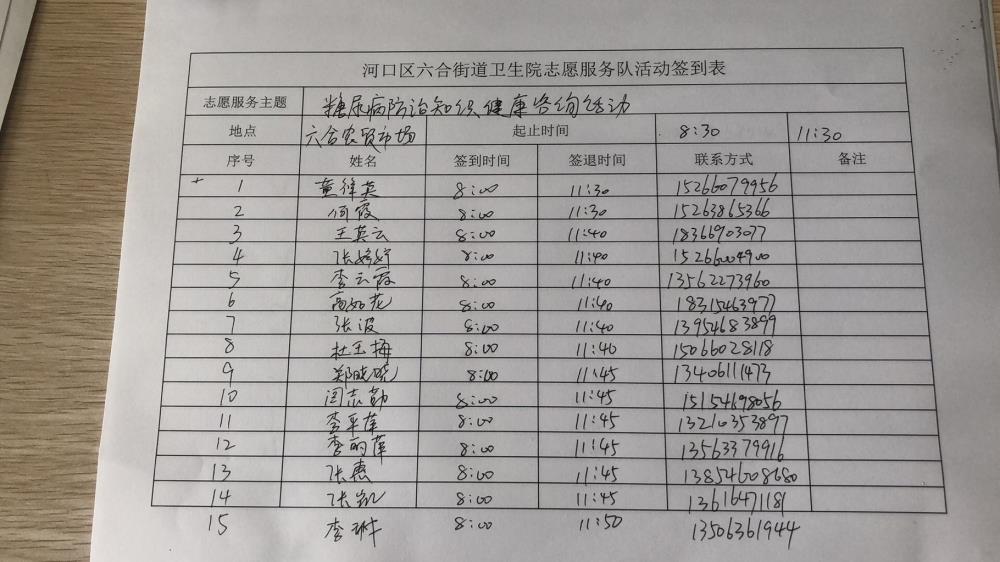 河口区六合街道卫生院志愿服务队活动签到表
志愿服务主题 糖尿病防治知识健康咨询活动
地点 六合农贸市场 起止时间 8:30 11:30
序号 姓名 签到时间 签退时间 联系方式 备注
1 董徐英 8:00 11:30 15266079956
2 何霞 8:00 11:30 15263865366
3 王英云 8:00 11:40 18366903077
4 张婷婷 8:00 11:40 15266004900
5 李云霞 8:00 11:40 13562273960
6 高如花 8:00 11:40 18315463977
7 张波 8:00 11:40 13954683899
8 杜玉梅 8:00 11:40 15066028118
9 郑晓晓 8:00 11:45 13406111473
10 闫志勤 8:00 11:45 15154698056
11 李平萍 8:00 11:45 13210353897
12 李丽萍 8:00 11:45 13563379916
13 张惠 8:00 11:45 13854608680
14 张凯 8:00 11:45 13616471181
15 李 8:00 11:50 13506361944